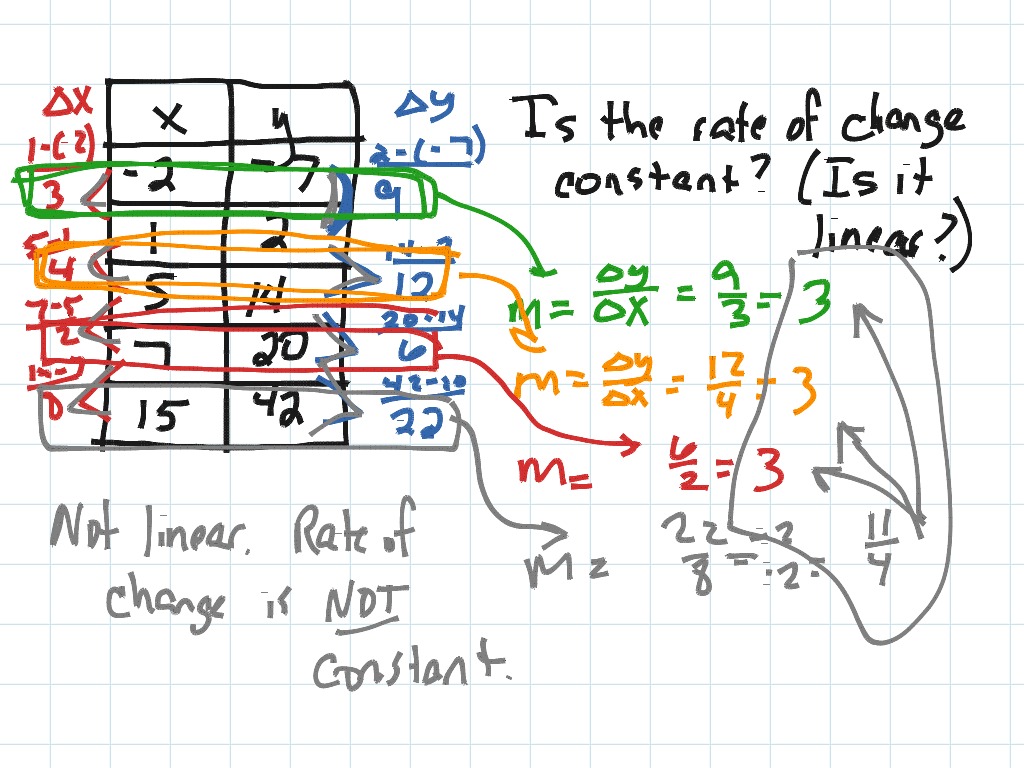 Δx x y Δy
1-(-2) 2-(-7)
-2 -7
3 9
1 2
5-1 14-2
4 12
5 14
7-5 20-14
2 6
7 20
8 22
15 42
Is the rate of change
constant? (Is it
linear?)
m = Δy/Δx = 9/3 = 3
m = Δy/Δx = 12/4 = 3
m = 6/2 = 3
m = 22/8 = 11/4
Not linear. Rate of
change is NOT
constant.